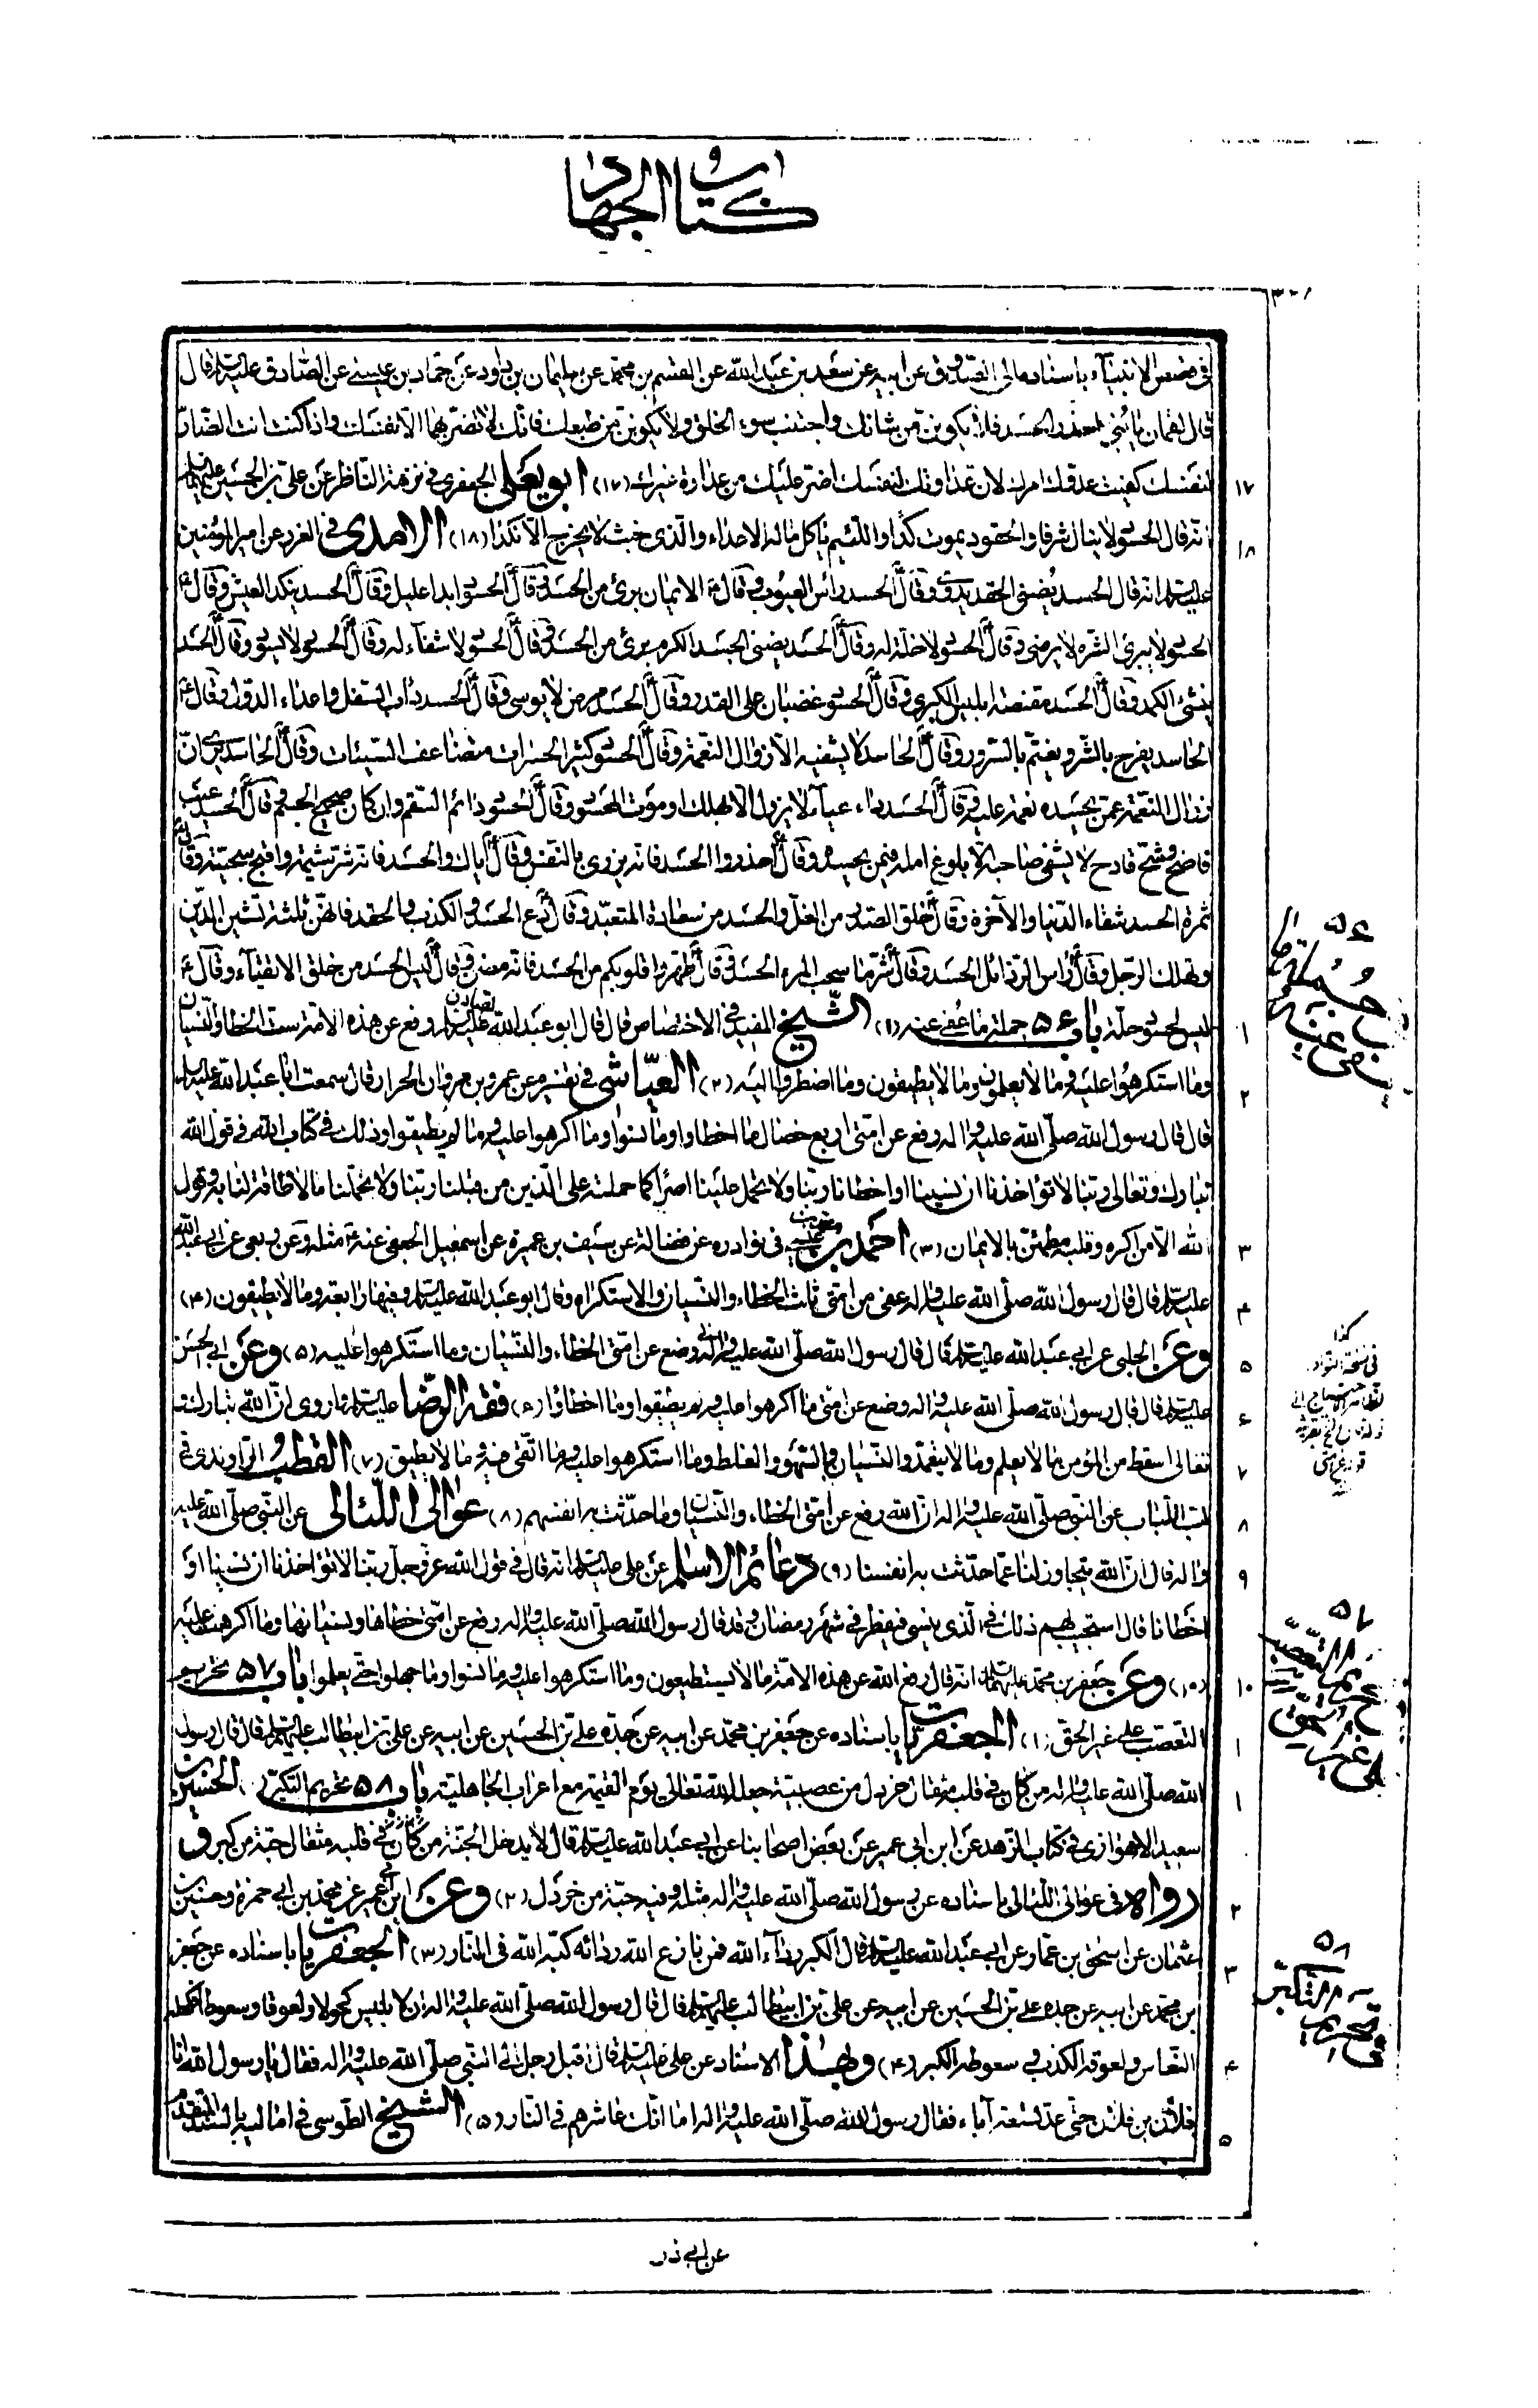 كتاب الجهاد
في قصص الأنبياء بإسناده إلى الصدوق عن أبيه عن سعد بن عبد الله عن القاسم بن محمد عن سليمان بن داود عن حماد بن عيسى عن الصادق عليه السلم قال
قال لقمان يا بني احذر الحسد فلا يكونن من شانك واجتنب سوء الخلق ولا يكونن من طبعك فانك لا تضر بهما الا نفسك واذا كنت انت الضار
لنفسك كفيت عدوك امرك لان عداوتك لنفسك اضر عليك من عداوة غيرك (١٧) ابو يعلى الجعفري في نزهة الناظر عن علي بن الحسين عليهما السلم
انه قال الحسود لا ينال شرفا والحقود يموت كمدا واللئيم ياكل ماله الاعداء والذي خبث لا يخرج الا نكدا (١٨) الامدي في الغرر عن امير المؤمنين
عليه السلم انه قال الحسد يضني الحقد يذري وقال ع الحسد راس العيوب وقال ع الايمان برئ من الحسد وقال ع الحسود ابدا عليل وقال ع الحسد ينكد العيش وقال ع
الحسود لا يبرئ الشره لا يرضى وقال ع الحسود لا خلة له وقال ع الحسد يضني الجسد الكرم برئ من الحسد وقال ع الحسود لا شفاء له وقال ع الحسود لا يسود وقال ع الحسد
ينشئ الكمد وقال ع الحسد مقنصة ابليس الكبرى وقال ع الحسود غضبان على القدر وقال ع الحسد مرض لا يوسى وقال ع الحسد داب السفل واعداء الدول وقال ع
الحاسد يفرح بالشرور ويغتم بالسرور وقال ع الحاسد لا يشفيه الا زوال النعمة وقال ع الحسود كثير الحسرات متضاعف السيئات وقال ع الحاسد يرى ان
زوال النعمة عمن يحسده نعمة عليه وقال ع الحسد داء عياء لا يزول الا بهلك او موت المحسود وقال ع الحسود دائم السقم وان كان صحيح الجسم وقال ع الحسد عيب
فاضح وشح فادح لا يشفي صاحبه الا بلوغ امله فيمن يحسده وقال ع احذروا الحسد فانه يزري بالنفس وقال ع اياك والحسد فانه شر شيمة واقبح سجية وقال ع
ثمرة الحسد شقاء الدنيا والآخرة وقال ع خلو الصدر من الغل والحسد من سعادة المتعبد وقال ع دع الحسد والكذب والحقد فانهن ثلثة تشين الدين
وتهلك الرجل وقال ع راس الرذائل الحسد وقال ع شر ما صحب المرء الحسد وقال ع طهروا قلوبكم من الحسد فانه مضن وقال ع ليس الحسد من خلق الاتقياء وقال ع
ليس لحسود خلة باب ٥٦ جملة مما عفي عنه (١) الشيخ المفيد في الاختصاص قال قال ابو عبد الله الصادق عليه السلم رفع عن هذه الامة ست الخطا والنسيان
وما استكرهوا عليه وما لا يعلمون وما لا يطيقون وما اضطروا اليه (٢) العياشي في تفسيره عن عمرو بن مروان الخزاز قال سمعت ابا عبد الله عليه السلم
قال قال رسول الله صلى الله عليه واله رفع عن امتي اربع خصال ما اخطاوا وما نسوا وما اكرهوا عليه وما لم يطيقوا وذلك في كتاب الله في قول الله
تبارك وتعالى ربنا لا تؤاخذنا ان نسينا او اخطانا ربنا ولا تحمل علينا اصرا كما حملته على الذين من قبلنا ربنا ولا تحملنا ما لا طاقة لنا به وقول
الله الا من اكره وقلبه مطمئن بالايمان (٣) احمد بن محمد بن عيسى في نوادره عن فضالة عن سيف بن عميرة عن اسمعيل الجعفي عنه ع مثله وعن ربعي عن ابي عبد الله
عليه السلم قال قال رسول الله صلى الله عليه واله عفي من امتي ثلث الخطاء والنسيان والاستكراه وقال ابو عبد الله عليه السلم وفيها رابعة وما لا يطيقون (٤)
وعن الحلبي عن ابي عبد الله عليه السلم قال قال رسول الله صلى الله عليه واله وضع عن امتي الخطاء والنسيان وما استكرهوا عليه (٥) وعن ابي الحسن
عليه السلم قال قال رسول الله صلى الله عليه واله وضع عن امتي ما اكرهوا عليه ولم يطيقوا وما اخطاوا (٦) فقه الرضا عليه السلم واروي ان الله تبارك و
تعالى اسقط من المؤمن ما لا يعلم وما لا يتعمد والنسيان والسهو والغلط وما استكره عليه وما اتقى فيه وما لا يطيق (٧) القطب الراوندي في
لب اللباب عن النبي صلى الله عليه واله ان الله رفع عن امتي الخطاء والنسيان وما حدثت به انفسهم (٨) عوالي اللئالي عن النبي صلى الله عليه
واله قال ان الله يتجاوز لنا عما حدثت به انفسنا (٩) دعائم الاسلم عن علي عليه السلم انه قال في قول الله عز وجل ربنا لا تؤاخذنا ان نسينا او
اخطانا قال استجيب لهم ذلك في الذي ينسى فيفطر في شهر رمضان وقد قال رسول الله صلى الله عليه واله رفع عن امتي خطاها ونسيانها وما اكرهت عليه
(١٠) وعن جعفر بن محمد عليهما السلم انه قال رفع الله عن هذه الامة ما لا يستطيعون وما استكرهوا عليه وما نسوا وما جهلوا حتى يعلموا باب ٥٧ تحريم
التعصب على غير الحق (١) الجعفريات باسناده عن جعفر بن محمد عن ابيه عن جده علي بن الحسين عن ابيه عن علي بن ابيطالب عليهم السلم قال قال رسول
الله صلى الله عليه واله من كان في قلبه مثقال خردل من عصبية جعله الله تعالى يوم القيمة مع اعراب الجاهلية باب ٥٨ تحريم التكبر (١) الحسين بن
سعيد الاهوازي في كتاب الزهد عن ابن ابي عمير عن بعض اصحابنا عن ابي عبد الله عليه السلم قال لا يدخل الجنة من كان في قلبه مثقال حبة من كبر و
رواه في عوالي اللئالي باسناده عن رسول الله صلى الله عليه واله مثله وفيه حبة من خردل (٢) وعن ابن ابي عمير عن محمد بن ابي حمزة وحسين بن
عثمان عن اسحق بن عمار عن ابي عبد الله عليه السلم قال الكبر رداء الله فمن نازع الله ردائه كبه الله في النار (٣) الجعفريات باسناده عن جعفر
بن محمد عن ابيه عن جده علي بن الحسين عن ابيه عن علي بن ابيطالب عليهم السلم قال قال رسول الله صلى الله عليه واله ان لابليس كحولا ولعوقا وسعوطا فكحله
النعاس ولعوقه الكذب وسعوطه الكبر (٤) وبهذا الاسناد عن علي عليه السلم قال اقبل رجل الى النبي صلى الله عليه واله فقال يا رسول الله انا
فلان بن فلان حتى عد تسعة آباء فقال رسول الله صلى الله عليه واله اما انك عاشرهم في النار (٥) الشيخ الطوسي في اماليه بالسند المتقدم
عن ابي ذر
١٧
١٨
١
٢
٣
٤
٥
٦
٧
٨
٩
١٠
١
١
٢
٣
٤
٥
٥٦
٥٧
٥٨